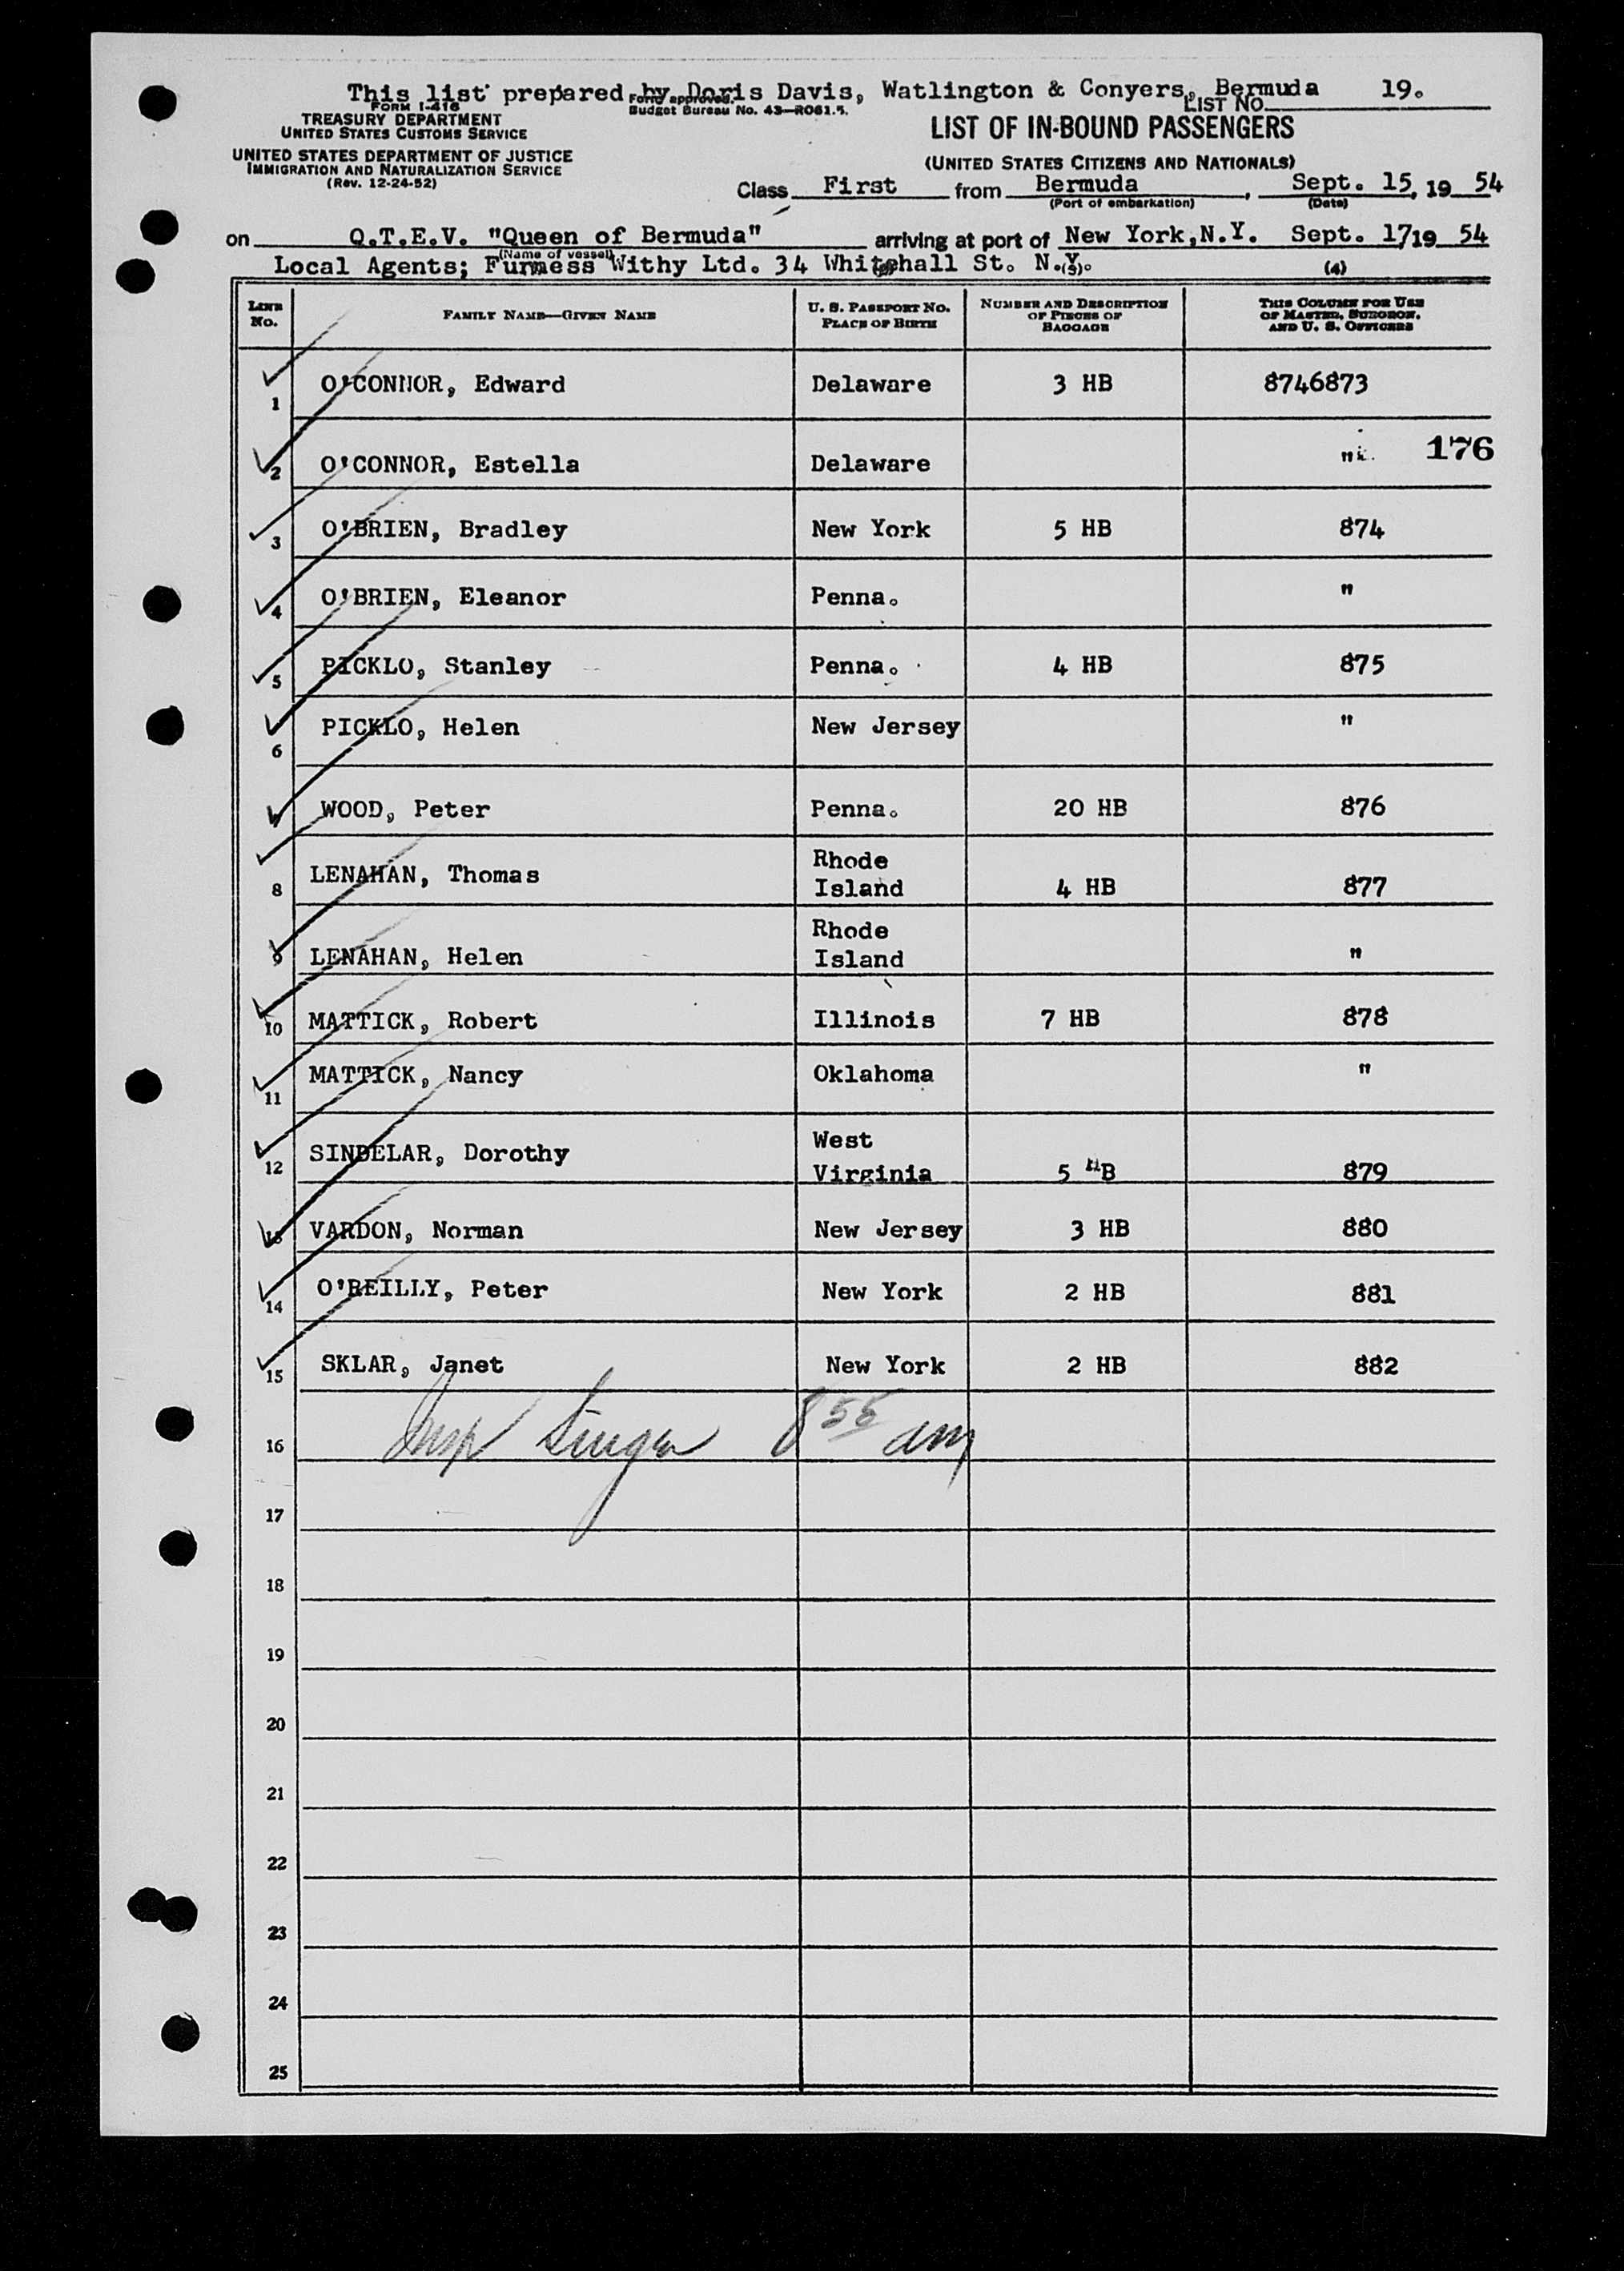 This list prepared by Doris Davis, Watlington & Conyers, Bermuda 19.
FORM I-416
TREASURY DEPARTMENT
UNITED STATES CUSTOMS SERVICE
UNITED STATES DEPARTMENT OF JUSTICE
IMMIGRATION AND NATURALIZATION SERVICE
(Rev. 12-24-52)
Form approved.
Budget Bureau No. 43—R061.5.
LIST NO.
LIST OF IN-BOUND PASSENGERS
(UNITED STATES CITIZENS AND NATIONALS)
Class First from Bermuda, Sept. 15, 19 54
(Port of embarkation) (Date)
on Q.T.E.V. "Queen of Bermuda" arriving at port of New York,N.Y. Sept. 17 19 54
(Name of vessel)
Local Agents; Furness Withy Ltd. 34 Whitehall St. N.Y.
(3) (4)
LINE No. FAMILY NAME—GIVEN NAME U. S. PASSPORT NO. PLACE OF BIRTH NUMBER AND DESCRIPTION OF PIECES OF BAGGAGE THIS COLUMN FOR USE OF MASTER, SURGEON, AND U. S. OFFICERS
1 O'CONNOR, Edward Delaware 3 HB 8746873
2 O'CONNOR, Estella Delaware " 176
3 O'BRIEN, Bradley New York 5 HB 874
4 O'BRIEN, Eleanor Penna. "
5 PICKLO, Stanley Penna. 4 HB 875
6 PICKLO, Helen New Jersey "
7 WOOD, Peter Penna. 20 HB 876
8 LENAHAN, Thomas Rhode Island 4 HB 877
9 LENAHAN, Helen Rhode Island "
10 MATTICK, Robert Illinois 7 HB 878
11 MATTICK, Nancy Oklahoma "
12 SINDELAR, Dorothy West Virginia 5 HB 879
13 VARDON, Norman New Jersey 3 HB 880
14 O'REILLY, Peter New York 2 HB 881
15 SKLAR, Janet New York 2 HB 882
16 Insp Singer 8 55 am
17
18
19
20
21
22
23
24
25